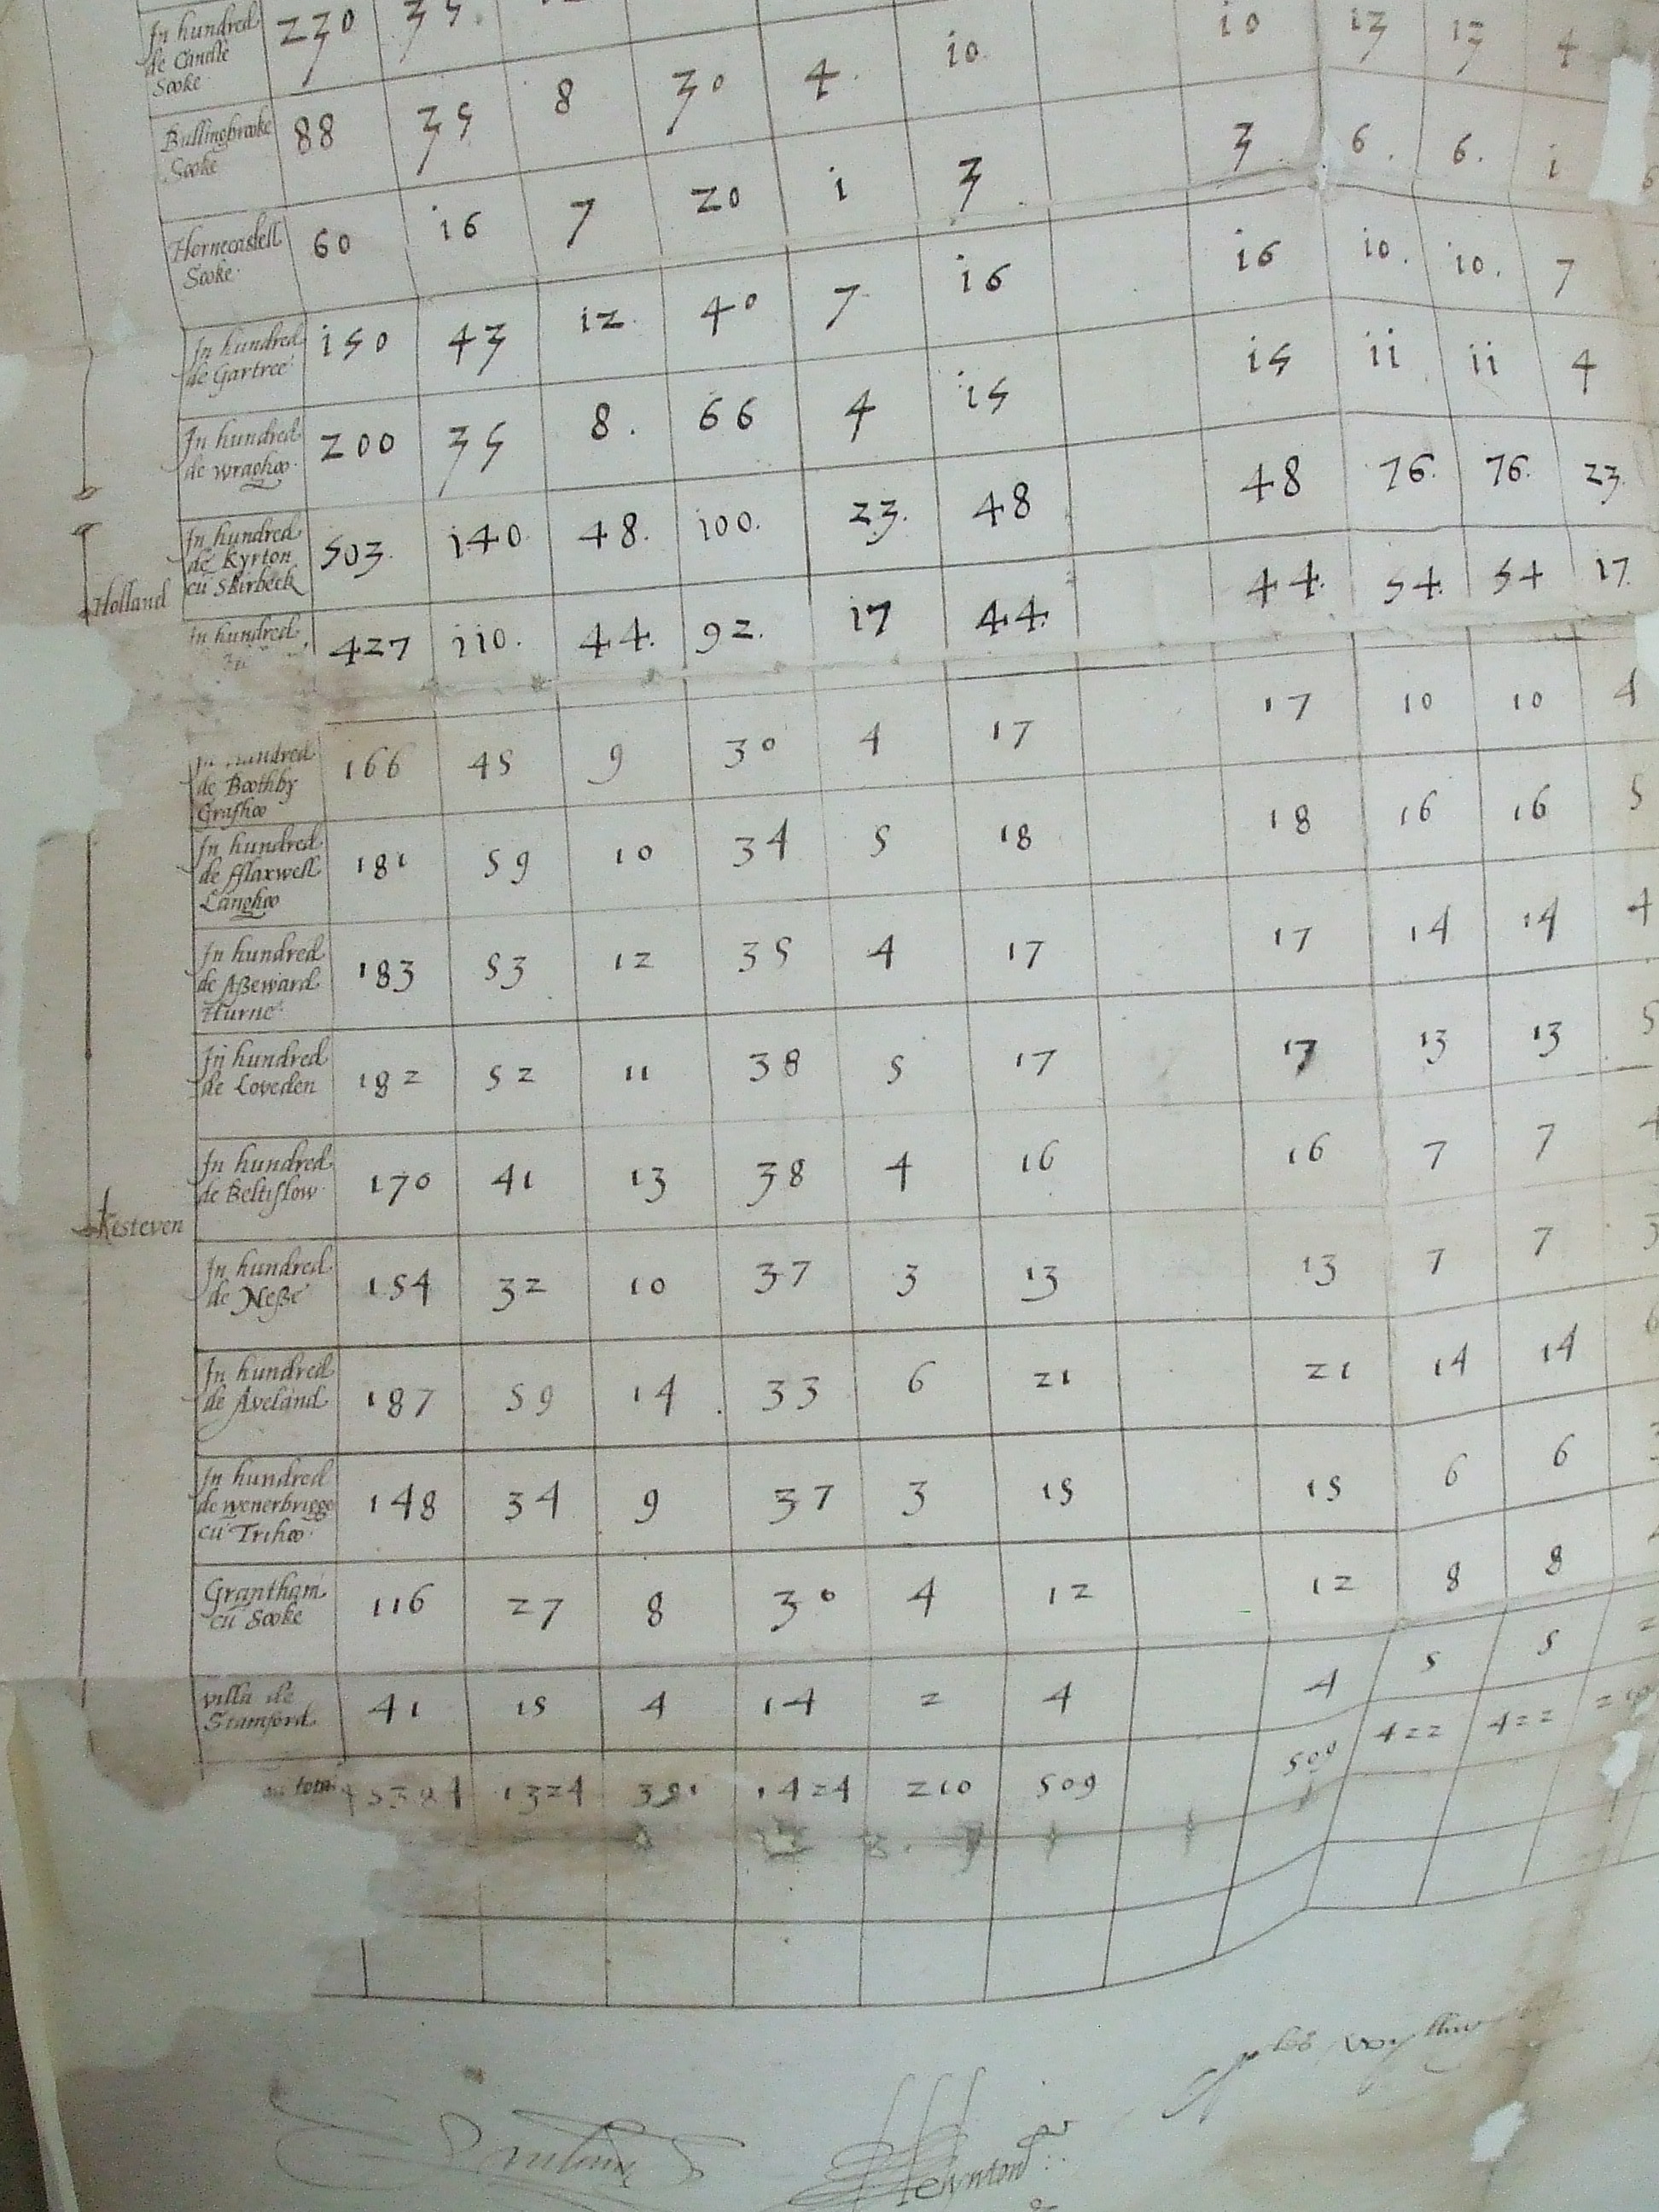 In hundred de Candle Sooke 230 35 10 13 13 4
Bullingbrooke Sooke 88 35 8 30 4 10 3 6 6 1
Hornecastell Sooke 60 16 7 20 1 3 16 10 10 7
In hundred de Gartree 150 43 12 40 7 16 15 11 11 4
In hundred de Wraghoo 200 35 8 66 4 15 48 76 76 23
Holland
In hundred de Kyrton cū Skirbeck 503 140 48 100 23 48 44 54 54 17
In hundred 427 110 44 92 17 44
Kesteven
In hundred de Boothby Grafhoo 166 45 9 30 4 17 17 10 10 4
In hundred de fflaxwell Langhoo 181 59 10 34 5 18 18 16 16 5
In hundred de Aßeward Hurne 183 53 12 35 4 17 17 14 14 4
In hundred de Loveden 182 52 11 38 5 17 17 13 13 5
In hundred de Beltislow 170 41 13 38 4 16 16 7 7 4
In hundred de Neße 154 32 10 37 3 13 13 7 7 3
In hundred de Aveland 187 59 14 33 6 21 21 14 14 6
In hundred de wenerbrigge cū Trihoo 148 34 9 37 3 15 15 6 6
Grantham cū Sooke 116 27 8 30 4 12 12 8 8
villa de Stamford 41 15 4 14 2 4 4 5 5 2
total 1324 391 1424 210 509 509 422 422 210